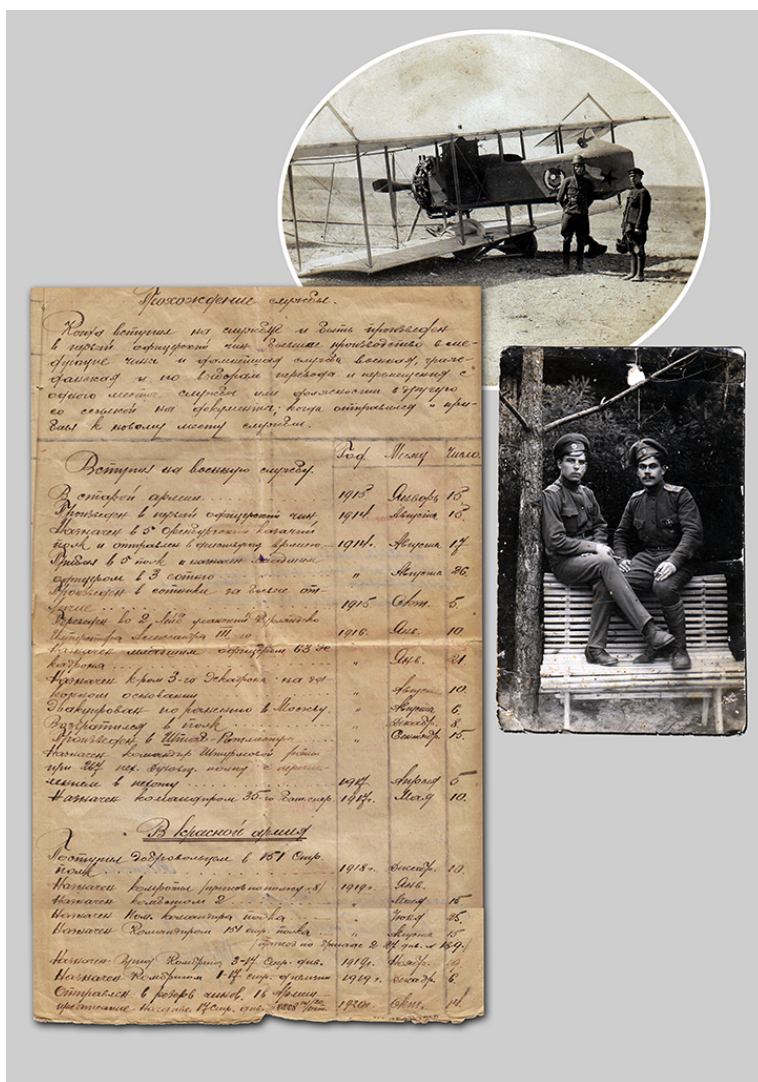 Прохождение службы.
Когда вступил на службу и быть произведен
в первый офицерский чин дальше производство в сле-
дующие чины и дальнейшая служба военная, граж-
данская и по выборам перевода и перемещения с
одного места службы или должности в другую
со ссылкой на документы; когда отправился и при-
был к новому месту службы.
Год Число.
Вступил на военную службу.
В старой армии 1915 Январь 15
Произведен в первый офицерский чин 1914 Августа 15.
Назначен в 5 Оренбургский казачий
полк и отправлен 1914г. Августа 17
Прибыл в 5 полк и назначен младшим
офицером в 3 сотню " Августа 26.
Произведен в сотники за боевое от-
личие 1915 Окт. 5.
Переведен во 2 Лейб уланский Курляндско
Императора Александра III го 1916. Янв. 10.
Назначен младшим офицером эс-
кадрона " Янв. 21
Назначен 3-го Эскадрона на за-
конном основании " Август 10.
Эвакуирован по ранению в Москву. " Августа 6.
Возвратился в полк " Декабр. 8.
Произведен в Штаб-Ротмистр. " Сентябр. 15.
Назначен командир Штурмовой роты
при 267 пех. полку с пере
лением в пехоту 1917 Апреля 5
Назначен командиром 35-го 1917г. Мая 10.
В красной армии
Поступил добровольцем в 151 Стр.
полк 1918г. Декабр. 20.
Назначен комроты 1919г. Янв.
Назначен комбатом 2 " 15
Назначен Пом. командира полка " Июля 25.
Назначен Командиром 151 стр. полка " Августа 15
Назначен Комбриг 3-17 Стр. див. 1919г.
Назначен Комбригом 1-17 стр. дивизии 1919г. Декабр. 6.
Отправлен в резерв чинов. 16 Армии
Начдив. 17 Стр. див. 1920г. Окт. 14.